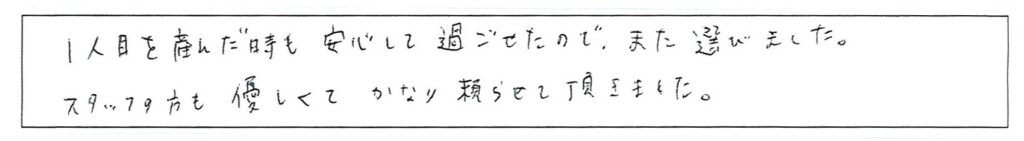 1人目を産んだ時も安心して過ごせたので、また選びました。
スタッフの方も優しくてかなり頼らせて頂きました。